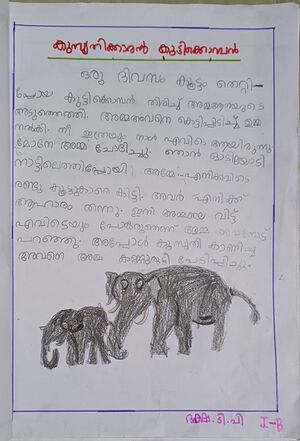 കുസൃതിക്കാരൻ കുഴിക്കൊമ്പൻ
ഒരു ദിവസം കൂട്ടം തെറ്റി-
പ്പോയ കുട്ടിക്കൊമ്പൻ തിരിച്ച് അമ്മആനയുടെ
അടുത്തെത്തി. അമ്മഅവനെ കെട്ടിപ്പിടിച്ചു ഉമ്മ
നൽകി. നീ ഇത്രയും നാൾ എവിടെ ആയിരുന്നു
മോനേ അമ്മ ചോദിച്ചു. ഞാൻ ഓടിയോടി
നാട്ടിലെത്തിപ്പോയി അമ്മേ. എനിക്കവിടെ
രണ്ടു കൂട്ടുകാരെ കിട്ടി. അവർ എനിക്ക്
ആഹാരം തന്നു. ഇനി അമ്മയെ വിട്ട്
എവിടെയും പോകരുതെന്ന് അമ്മ അവനോട്
പറഞ്ഞു. അപ്പോൾ കുസൃതി കാണിച്ച
അവനെ അമ്മ കണ്ണുരുട്ടി പേടിപ്പിച്ചു.
ദക്ഷ. ടി. പി I-B